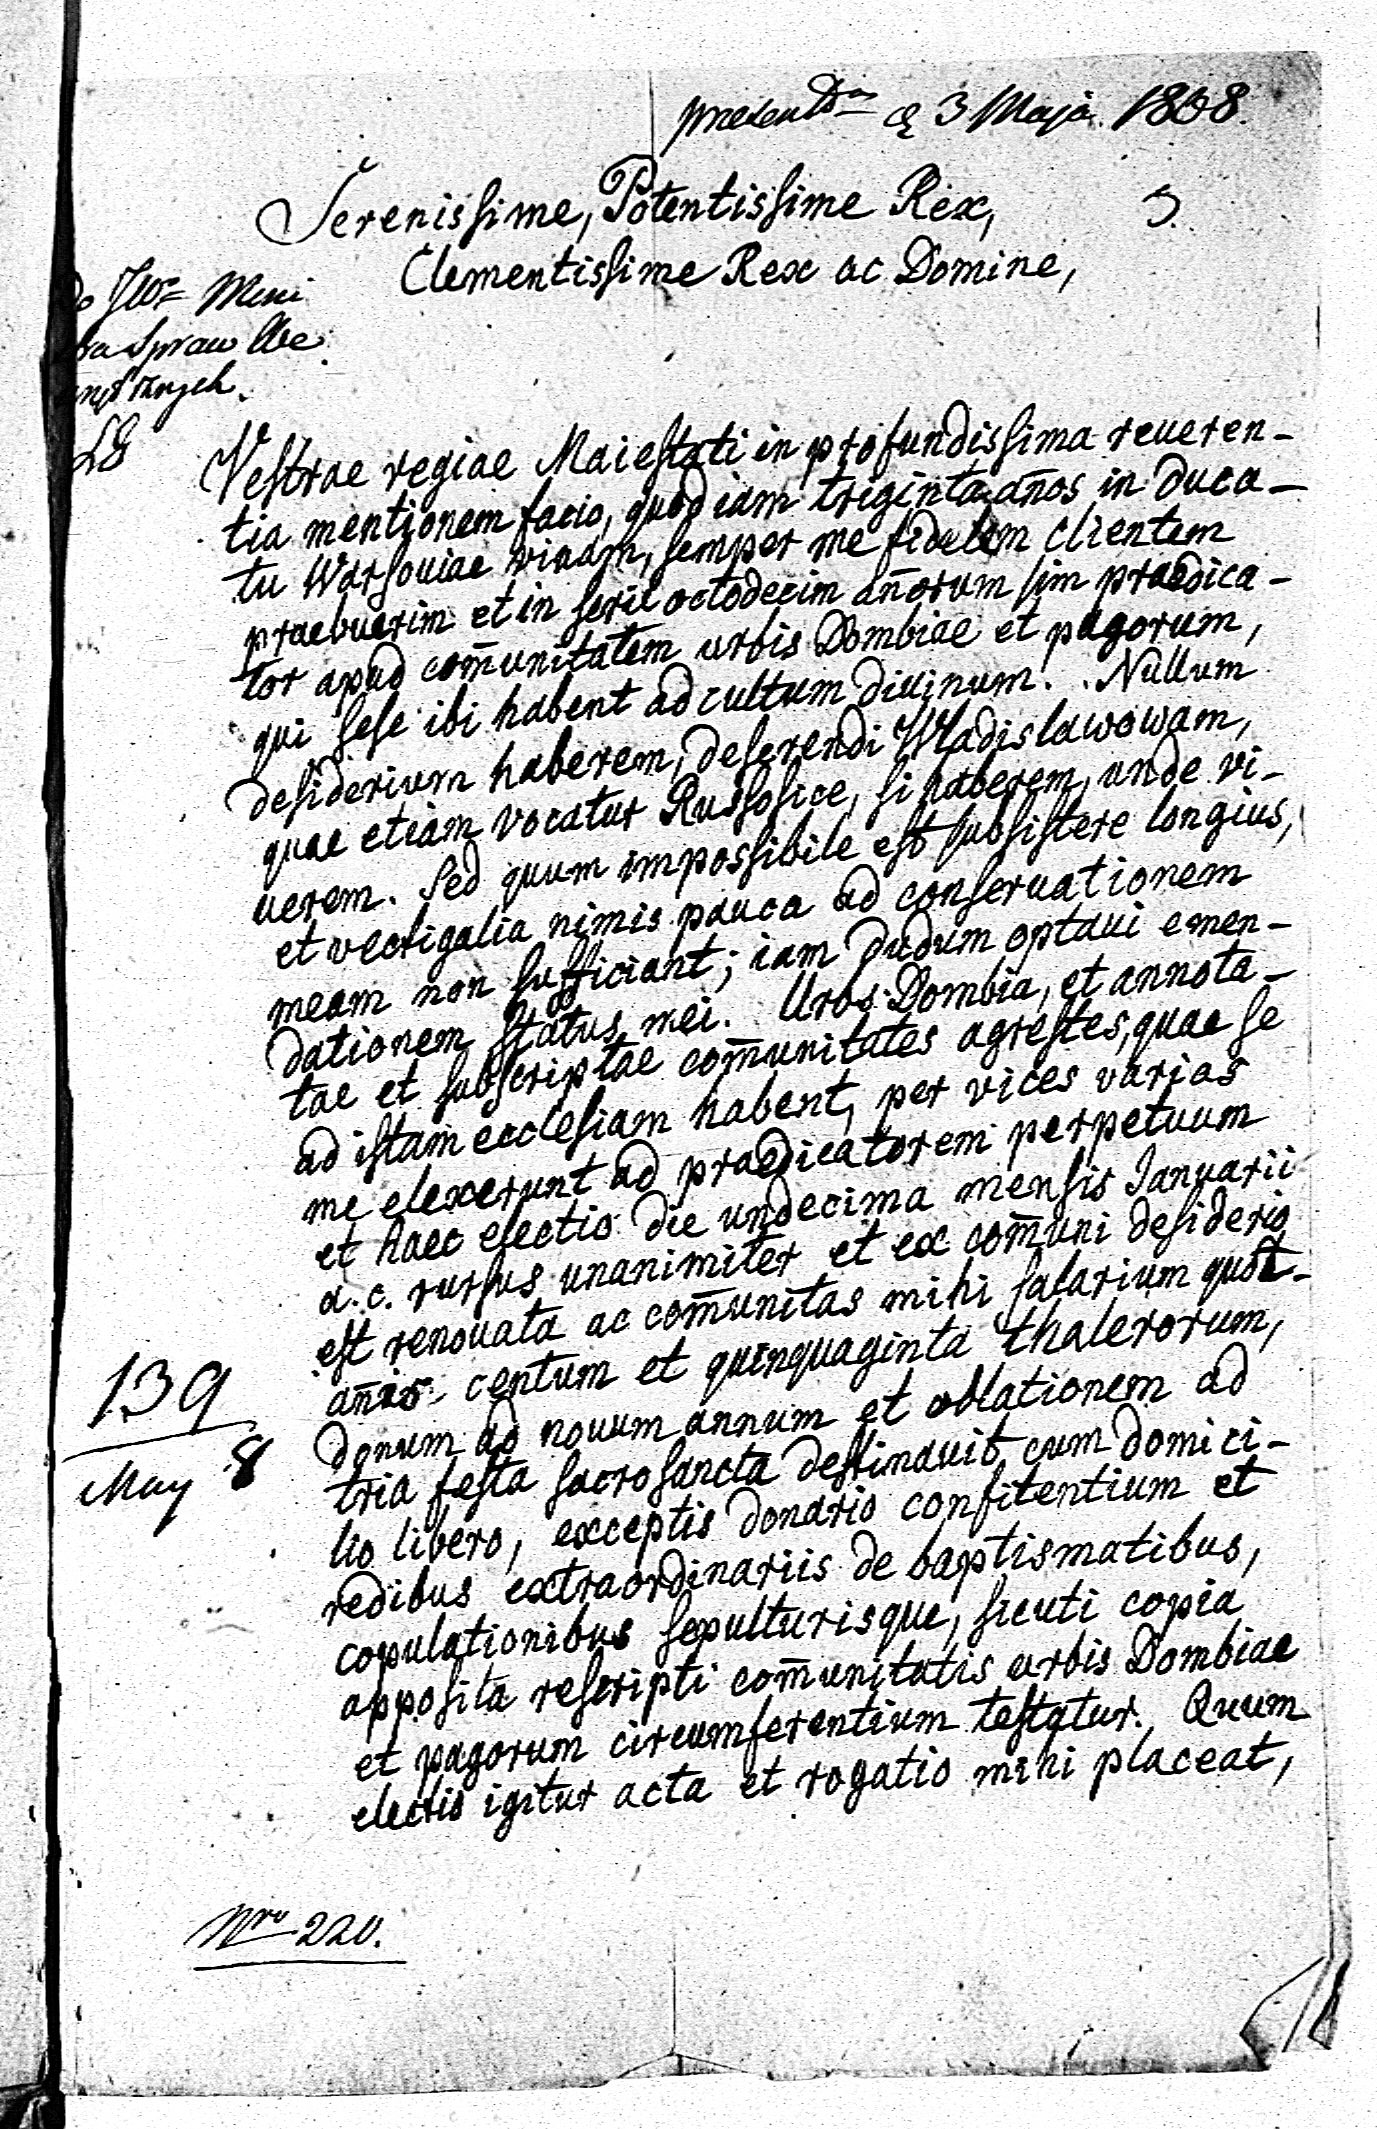 d. 3 Maja. 1808.
3.
Serenissime, Potentissime Rex,
Clementissime Rex ac Domine,
Do JW Mini
Spraw We
wnętrznych.
Vestrae regiae Maiestati in profundissima reueren-
tia mentionem facio, quod iam triginta añnos in Duca-
tu Warsouiae viuam, semper me fidelem clientem
praebuerim et in serie octodecim añorum sim praedica-
tor apud com̄unitatem urbis Dombiae et pagorum,
qui sese ibi habent ad cultum diuinum. Nullum
desiderium haberem, deserendi Wladislawowam,
quae etiam vocatur Russosice, si haberem, unde vi-
uerem. Sed quum impossibile est subsistere longius,
et vectigalia nimis pauca ad conseruationem
meam non sufficiant; iam dudum optaui emen-
dationem status mei. Urbs Dombia, et annota-
tae et subscriptae com̄unitates agrestes, quae se
ad istam ecclesiam habent, per vices varias
me elexerunt ad praedicatorem perpetuum
et haec electio die undecima mensis Ianuarii
a. c. rursus unanimiter et ex com̄uni desiderio
est renouata ac com̄unitas mihi salarium quot-
añis centum et quinquaginta thalerorum,
donum ad nouum annum et oblationem ad
tria festa sacrosancta destinauit cum domici-
lio libero, exceptis donario confitentium et
redibus extraordinariis de baptismatibus,
copulationibus sepulturisque, sicuti copia
apposita rescripti com̄unitatis urbis Dombiae
et pagorum circumferentium testatur. Quum
electio igitur acta et rogatio mihi placeat,
139
May 8
Nro 220.